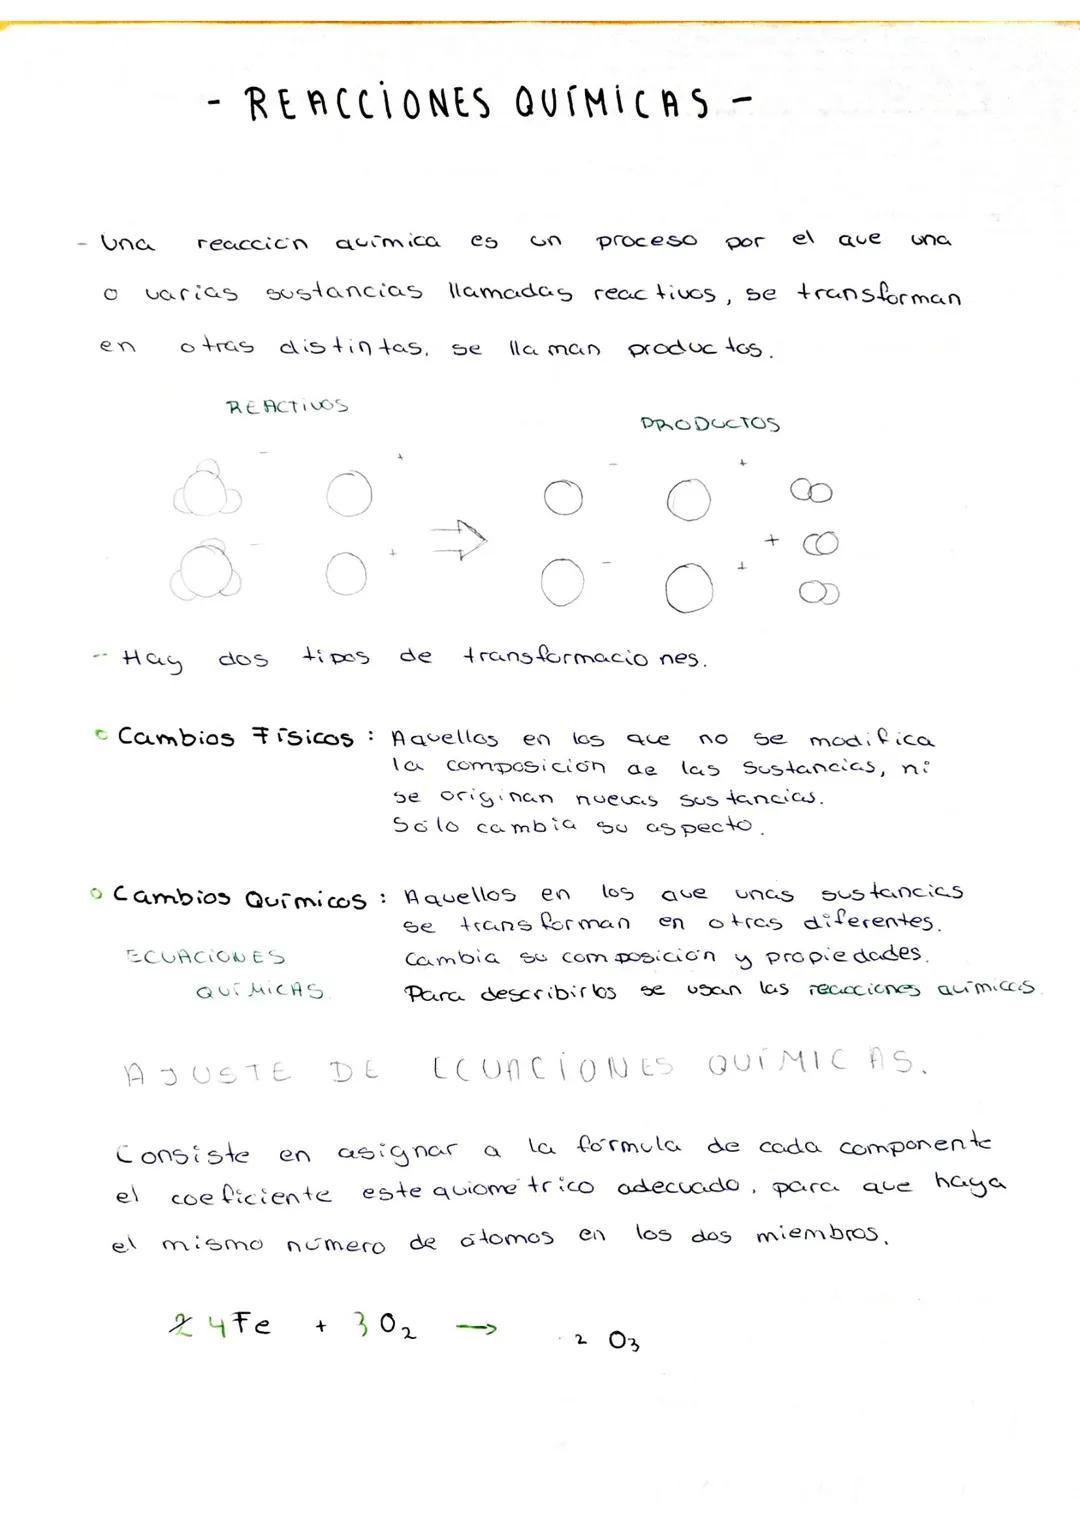 - REACCIONES QUÍMICAS -
- Una reacción química es un proceso por el que una
o varias sustancias llamadas reactivos, se transforman
en otras distintas, se llaman productos.
REACTIVOS
PRODUCTOS
- + - + 
+
- + - +
- Hay dos tipos de transformaciones.
Cambios Físicos : Aquellos en los que no se modifica
la composición de las sustancias, ni
se originan nuevas sustancias.
Sólo cambia su aspecto.
Cambios Químicos : Aquellos en los que unas sustancias
se transforman en otras diferentes.
ECUACIONES
QUÍMICAS
Cambia su composición y propiedades.
Para describirlos se usan las reacciones químicas.
AJUSTE DE ECUACIONES QUÍMICAS.
Consiste en asignar a la fórmula de cada componente
el coeficiente estequiométrico adecuado, para que haya
el mismo número de átomos en los dos miembros.
2 4Fe + 3O2 → 2 O3